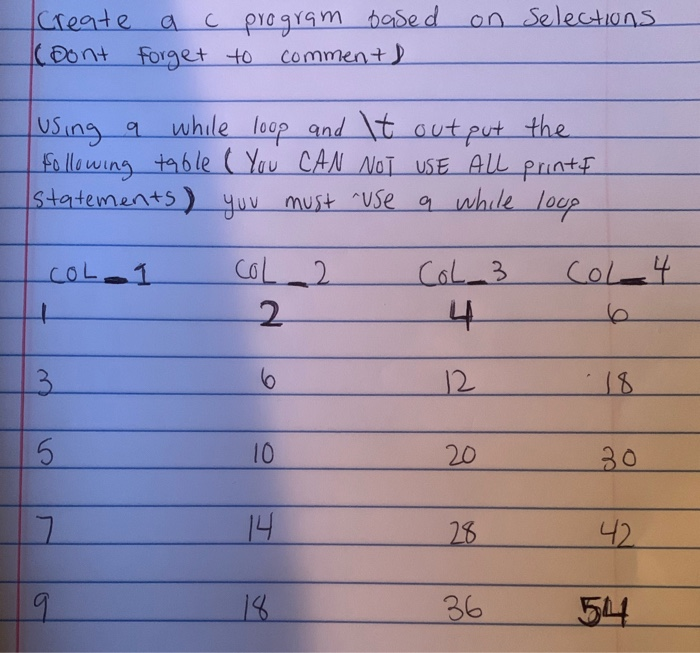 Create a c program based on Selections
(Dont forget to comment)
Using a while loop and \t output the
following table (You CAN NOT USE ALL printf
statements) you must use a while loop
COL_1 COL_2 COL_3 COL_4
1 2 4 6
3 6 12 18
5 10 20 30
7 14 28 42
9 18 36 54